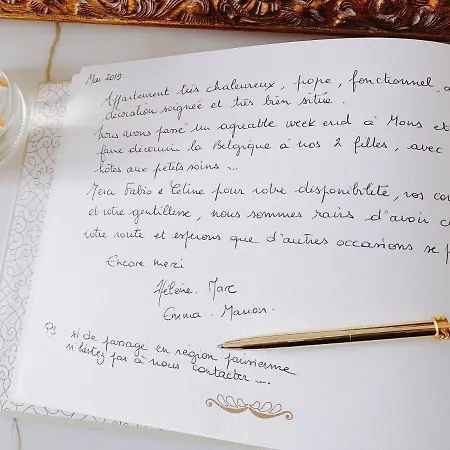 Mai 2019
Appartement très chaleureux, propre, fonctionnel,
décoration soignée et très bien située.
Nous avons passé un agréable week end à Mons et
faire découvrir la Belgique à nos 2 filles, avec
hôtes aux petits soins ...
Merci Fabio e Céline pour votre disponibilité, vos
et votre gentillesse, nous sommes ravis d'avoir
votre route et espérons que d'autres occasions se
Encore merci
Hélène. Marc
Emma. Manon.
Ps. si de passage en région parisienne
n'hésitez pas à nous contacter ....